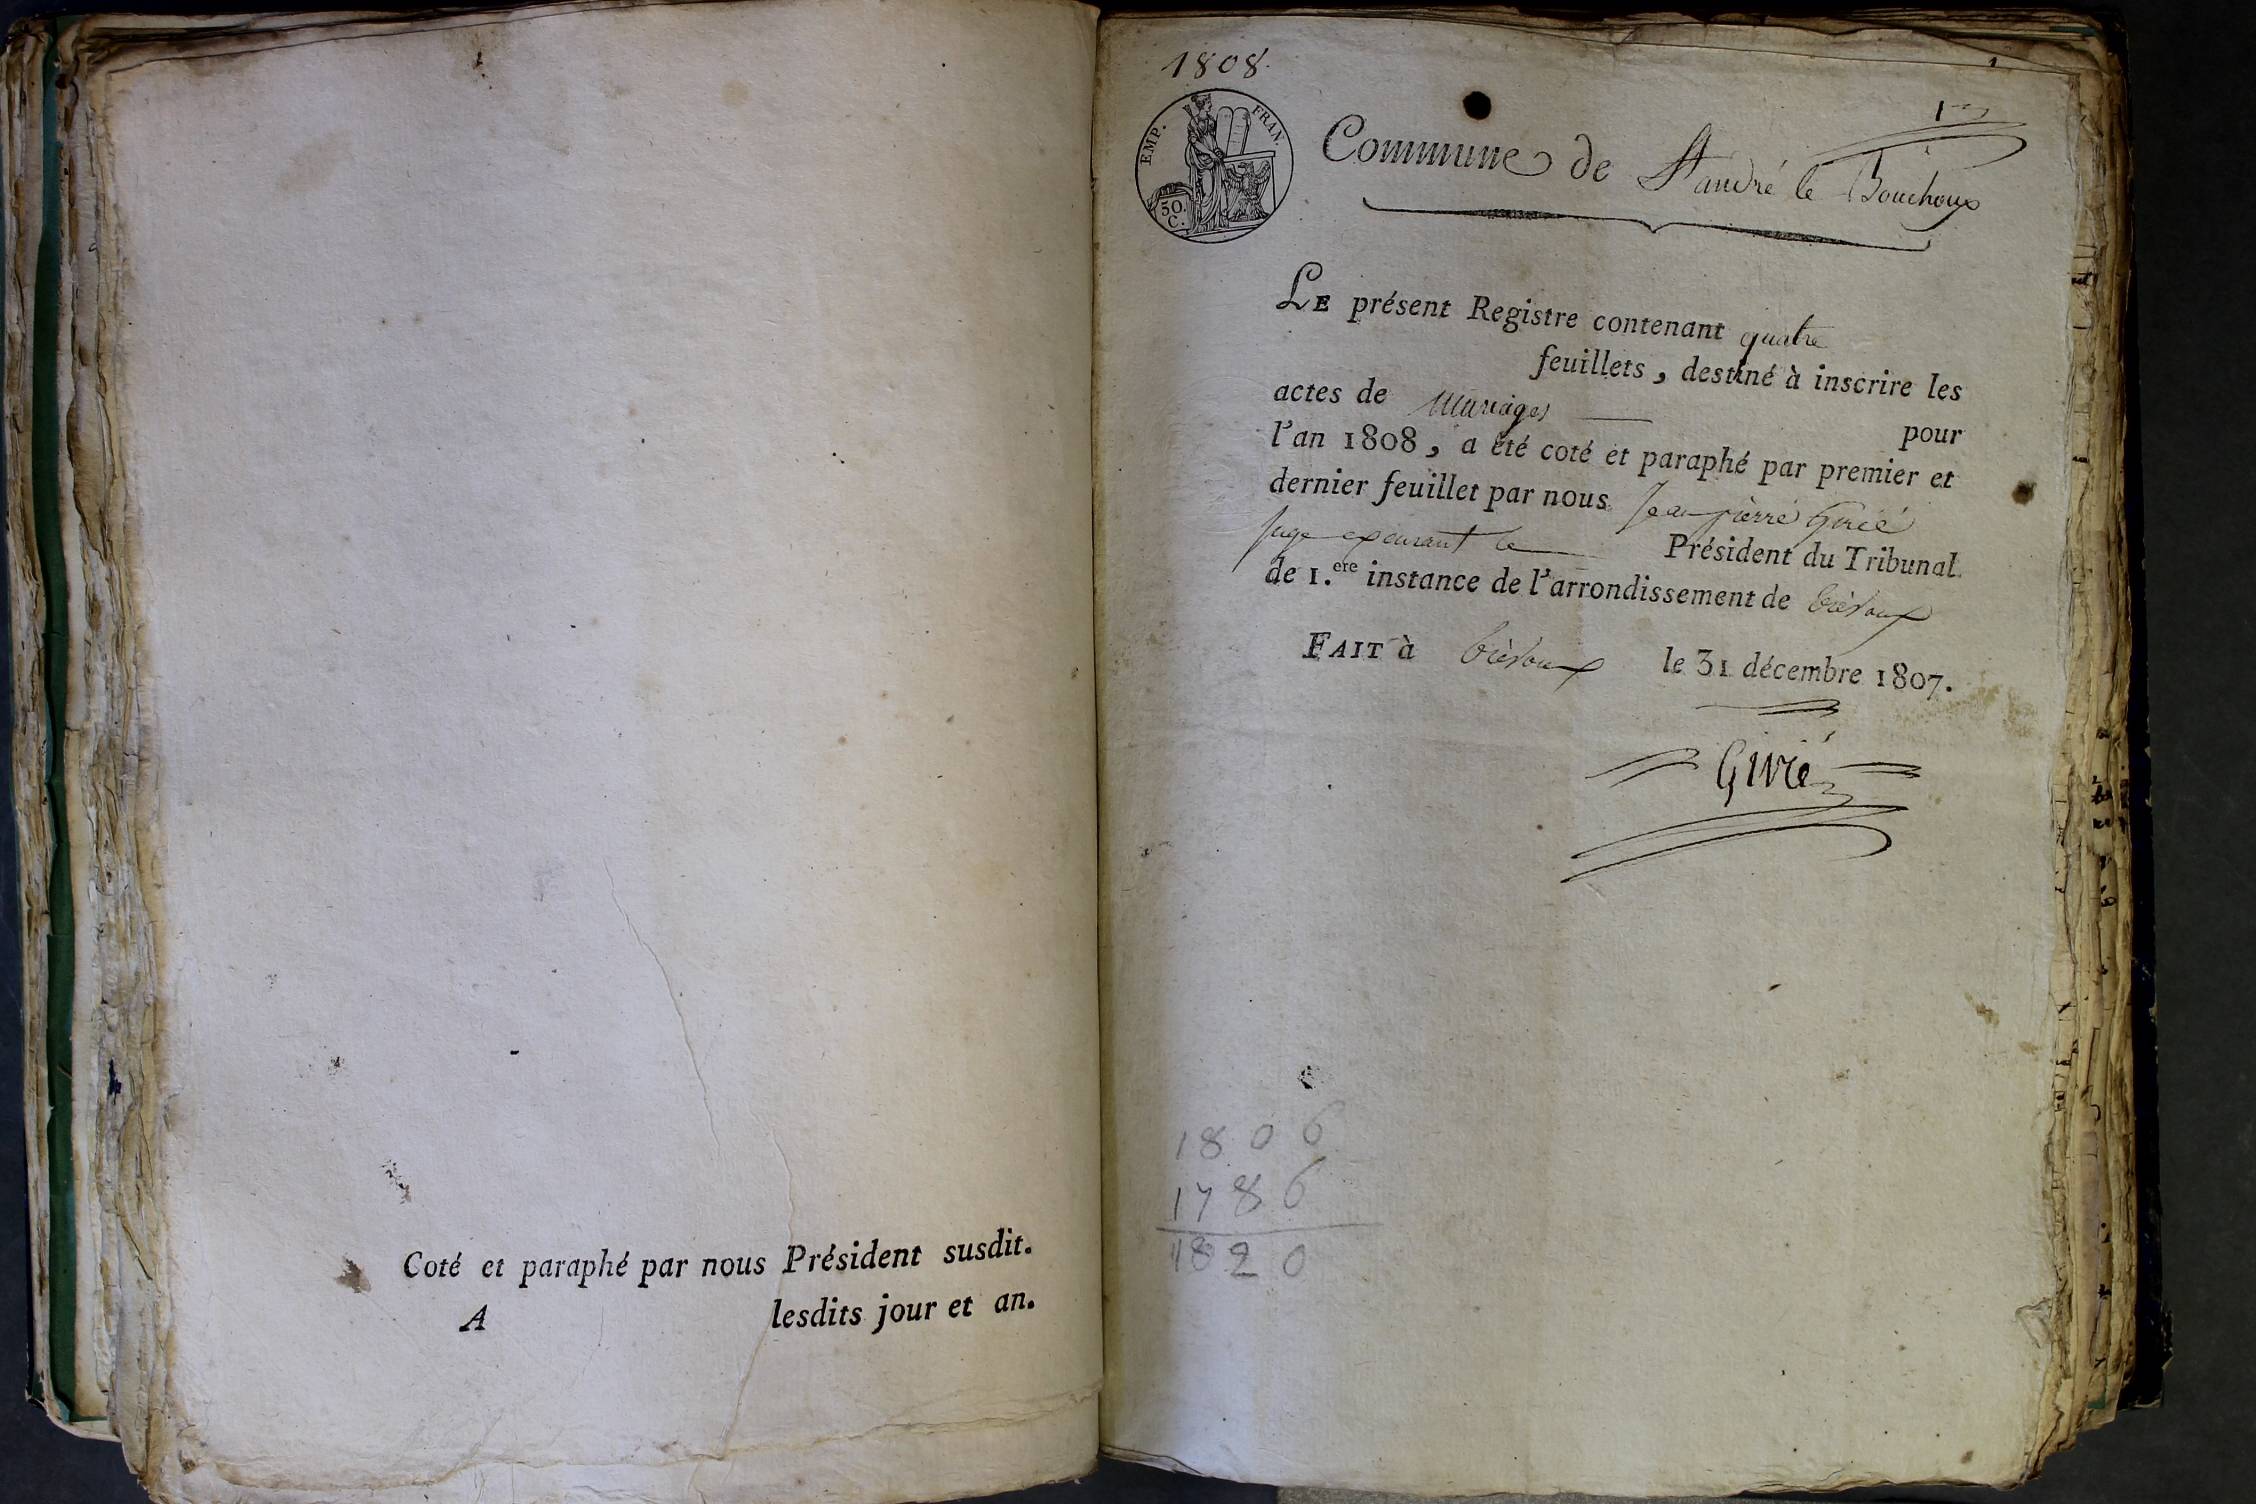 Coté et paraphé par nous Président susdit.
A lesdits jour et an.
1808.
1
1er
EMP. FRAN.
50.
C.
Commune de St andré le Bouchoux
LE présent Registre contenant quatre
feuillets, destiné à inscrire les
actes de mariages pour
l'an 1808, a été coté et paraphé par premier et
dernier feuillet par nous Jean pierre Givié
juge exerçant le Président du Tribunal
de 1.ere instance de l'arrondissement de trévoux
FAIT à trévoux le 31 décembre 1807.
Givié
1806
1786
1820